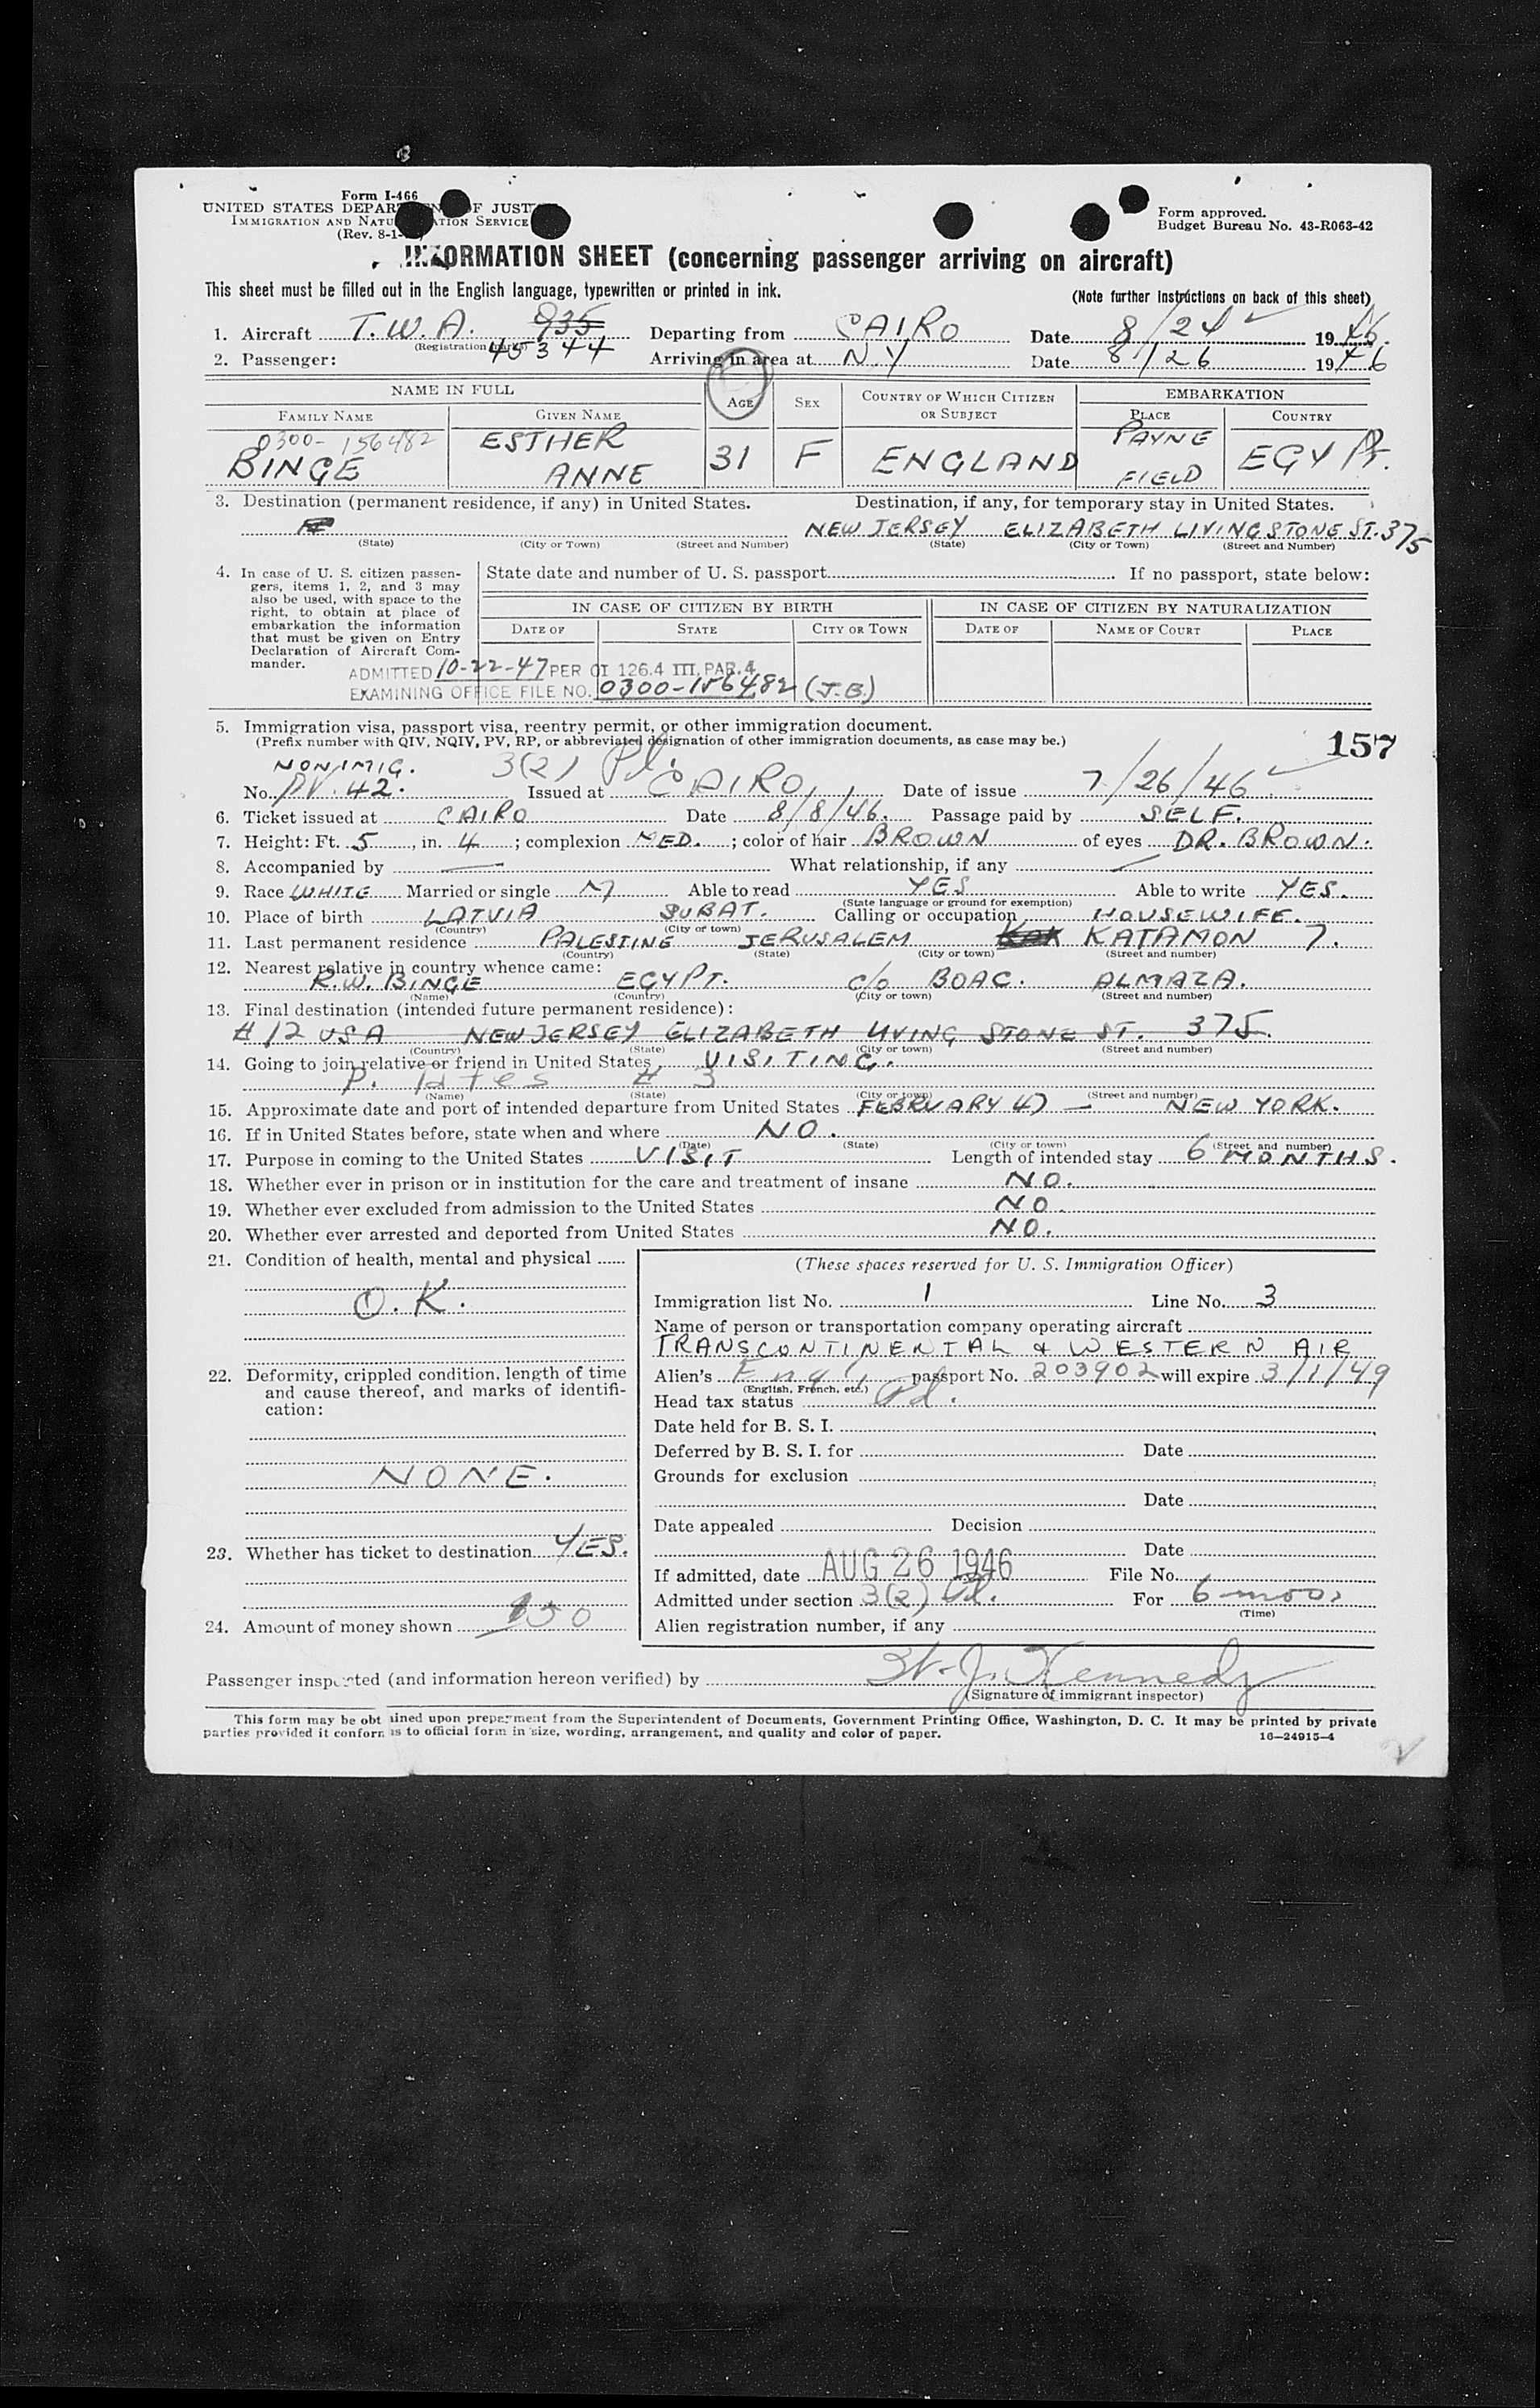 Form I-466
UNITED STATES DEPARTMENT OF JUSTICE
IMMIGRATION AND NATURALIZATION SERVICE
(Rev. 8-1-
Form approved.
Budget Bureau No. 43-R063-42
INFORMATION SHEET (concerning passenger arriving on aircraft)
This sheet must be filled out in the English language, typewritten or printed in ink.
(Note further instructions on back of this sheet)
1. Aircraft T.W.A. 935 Departing from CAIRO Date 8/24 1946.
(Registration
45344
2. Passenger: Arriving in area at N.Y Date 8/26 1946
NAME IN FULL AGE SEX COUNTRY OF WHICH CITIZEN OR SUBJECT EMBARKATION
FAMILY NAME GIVEN NAME PLACE COUNTRY
0300-156482 ESTHER PAYNE
BINGE ANNE 31 F ENGLAND FIELD EGYPT.
3. Destination (permanent residence, if any) in United States. Destination, if any, for temporary stay in United States.
NEW JERSEY ELIZABETH LIVINGSTONE ST. 375
(State) (City or Town) (Street and Number) (State) (City or Town) (Street and Number)
4. In case of U. S. citizen passengers, items 1, 2, and 3 may
also be used, with space to the
right, to obtain at place of
embarkation the information
that must be given on Entry
Declaration of Aircraft Commander.
State date and number of U. S. passport If no passport, state below:
IN CASE OF CITIZEN BY BIRTH IN CASE OF CITIZEN BY NATURALIZATION
DATE OF STATE CITY OR TOWN DATE OF NAME OF COURT PLACE
ADMITTED 10-22-47 PER OI 126.4 III, PAR. 4
EXAMINING OFFICE FILE NO. 0300-156482 (J.B.)
5. Immigration visa, passport visa, reentry permit, or other immigration document.
(Prefix number with QIV, NQIV, PV, RP, or abbreviated designation of other immigration documents, as case may be.)
157
NONIMIG. 3(2)
No. PV. 42. Issued at CAIRO Date of issue 7/26/46
6. Ticket issued at CAIRO Date 8/8/46. Passage paid by SELF.
7. Height: Ft. 5, in. 4; complexion MED.; color of hair BROWN of eyes DR. BROWN.
8. Accompanied by — What relationship, if any —
9. Race WHITE Married or single M Able to read YES Able to write YES.
(State language or ground for exemption)
10. Place of birth LATVIA SUBAT. Calling or occupation HOUSEWIFE.
(Country) (City or town)
11. Last permanent residence PALESTINE JERUSALEM KATAMON 7.
(Country) (State) (City or town) (Street and number)
12. Nearest relative in country whence came:
R.W. BINGE EGYPT. c/o BOAC. ALMAZA.
(Name) (Country) (City or town) (Street and number)
13. Final destination (intended future permanent residence):
#12 USA NEW JERSEY ELIZABETH LIVINGSTONE ST. 375.
(Country) (State) (City or town) (Street and number)
14. Going to join relative or friend in United States VISITING.
(Name) (State) (City or town) (Street and number)
15. Approximate date and port of intended departure from United States FEBRUARY 47 — NEW YORK.
16. If in United States before, state when and where NO.
(Date) (State) (City or town) (Street and number)
17. Purpose in coming to the United States VISIT Length of intended stay 6 MONTHS.
18. Whether ever in prison or in institution for the care and treatment of insane NO.
19. Whether ever excluded from admission to the United States NO.
20. Whether ever arrested and deported from United States NO.
21. Condition of health, mental and physical
O.K.
22. Deformity, crippled condition, length of time
and cause thereof, and marks of identification:
NONE.
23. Whether has ticket to destination YES.
24. Amount of money shown 150
(These spaces reserved for U. S. Immigration Officer)
Immigration list No. 1 Line No. 3
Name of person or transportation company operating aircraft
TRANSCONTINENTAL & WESTERN AIR
Alien's Engl passport No. 203902 will expire 3/1/49
(English, French, etc.)
Head tax status Pd.
Date held for B. S. I.
Deferred by B. S. I. for Date
Grounds for exclusion
Date
Date appealed Decision
Date
If admitted, date AUG 26 1946 File No.
Admitted under section 3(2) For 6 mos
(Time)
Alien registration number, if any
Passenger inspected (and information hereon verified) by Kennedy
(Signature of immigrant inspector)
This form may be obtained upon prepayment from the Superintendent of Documents, Government Printing Office, Washington, D. C. It may be printed by private
parties provided it conforms to official form in size, wording, arrangement, and quality and color of paper.
16—24915-4